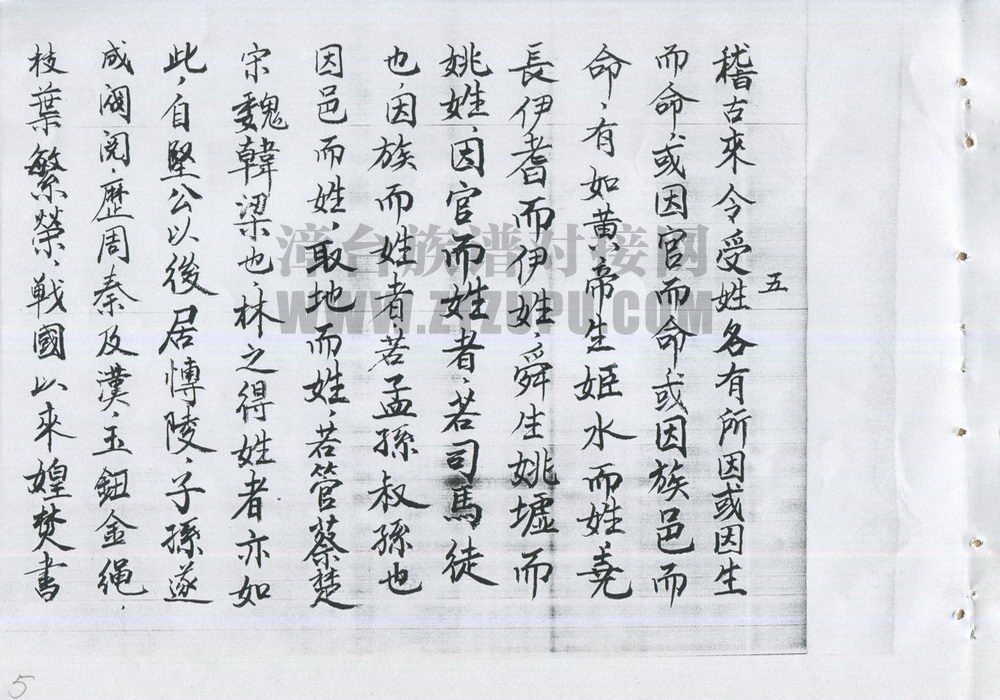 五
稽古來令受姓各有所因或因生
而命，或因官而命，或因族邑而
命，有如黄帝生姬水而姓堯
長伊耆而伊姓，舜生姚墟而
姚姓，因官而姓者，若司馬徒
也，因族而姓者，若孟孫叔孫也
因邑而姓，取地而姓，若管蔡楚
宋魏韓梁也，林之得姓者亦如
此，自堅公以後居愽陵，子孫遂
成阀阅，歴周秦及漢，玉鈕金绳，
枝葉繁榮，戰國以來煌焚書
漳台族谱对接网
WWW.ZTZUPU.COM
5